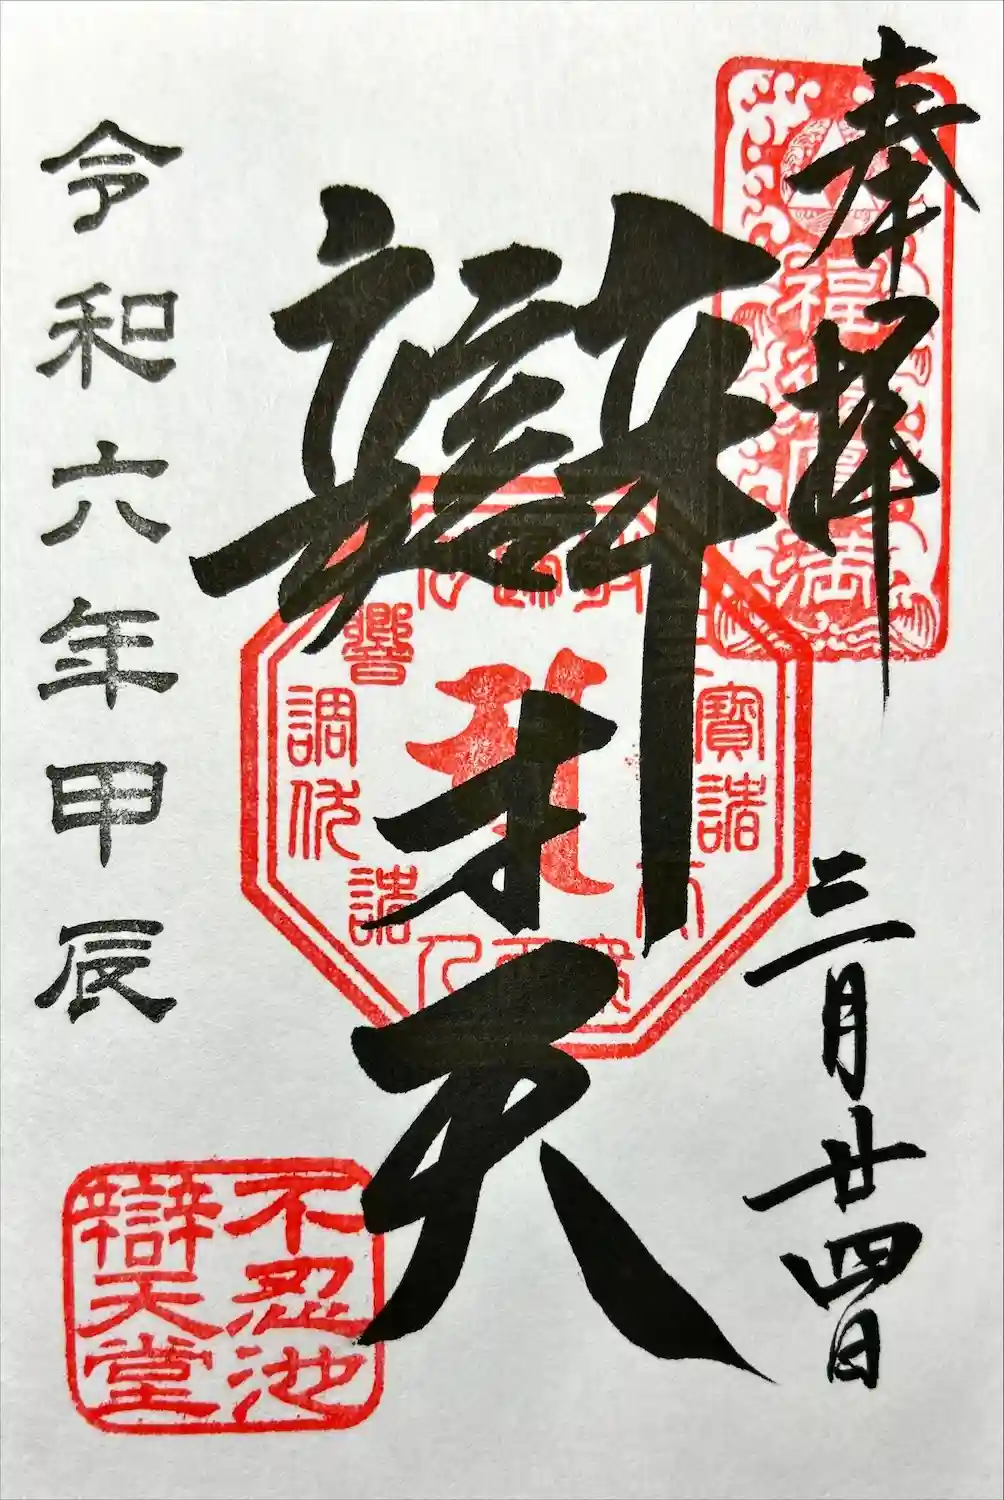 奉拝
三月廿四日
福徳円満
辯才天
寶諸
響
調伏諸
令和六年甲辰
不忍池
辯天堂